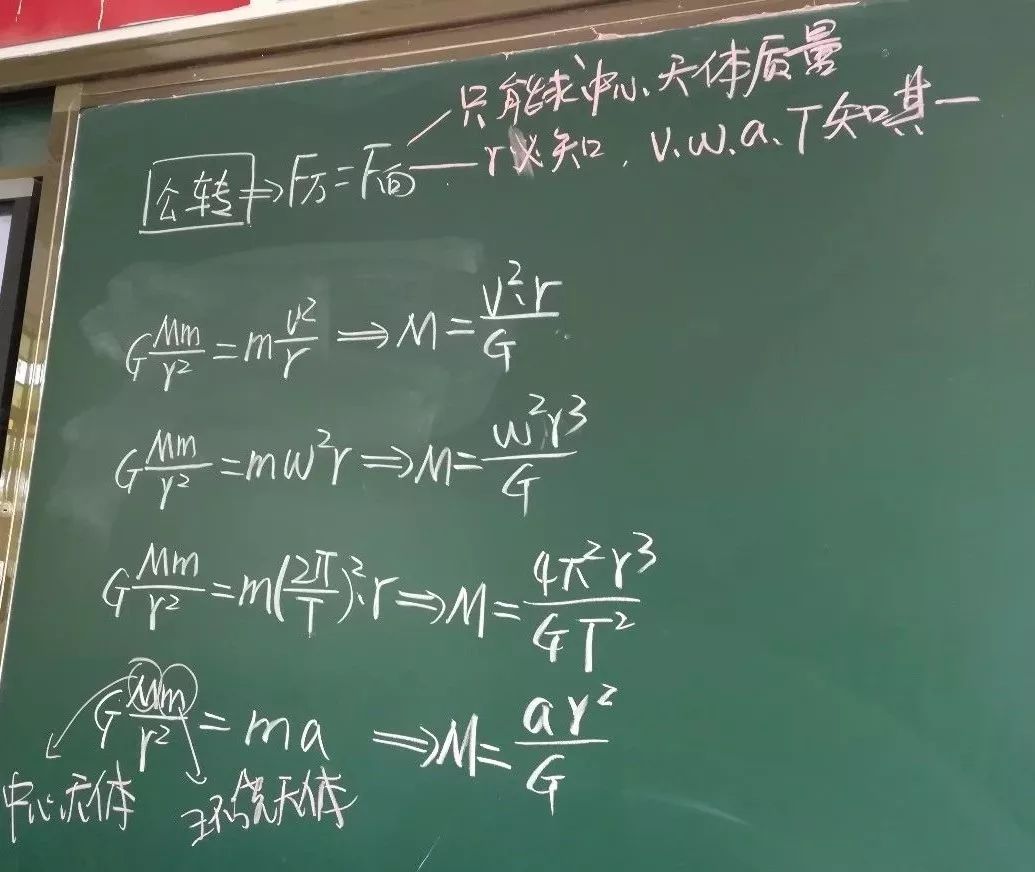 只能求中心天体质量
公转 ⇒ F万 = F向 — r必知，v.w.a.T知其一
G Mm/r² = m v²/r ⇒ M = v²·r/G
G Mm/r² = mw²r ⇒ M = w²r³/G
G Mm/r² = m(2π/T)²·r ⇒ M = 4π²r³/GT²
G Mm/r² = ma ⇒ M = ar²/G
中心天体 环绕天体